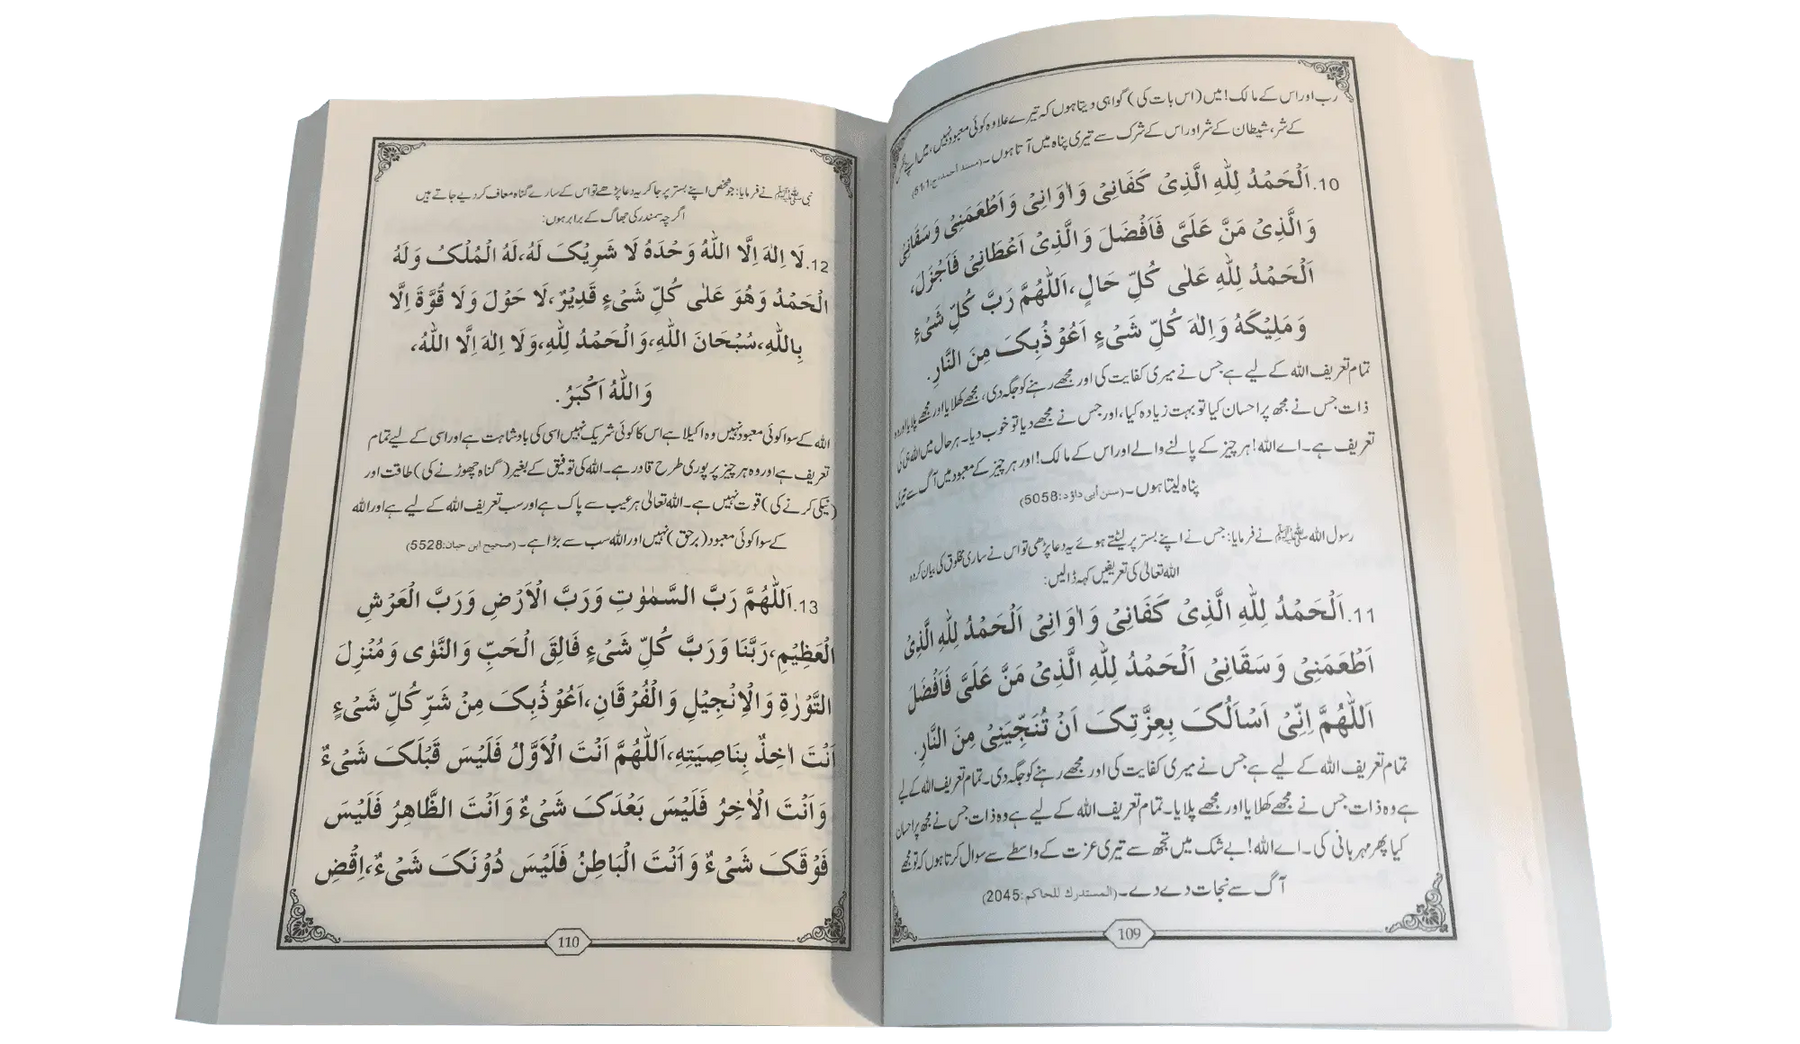 رب اور اس کے مالک! میں (اس بات کی) گواہی دیتا ہوں کہ تیرے علاوہ کوئی معبود نہیں، میں اپنے نفس
کے شر، شیطان کے شر اور اس کے شرک سے تیری پناہ میں آتا ہوں۔ (مسند احمد:ج:1:
10. اَلْحَمْدُ لِلّٰهِ الَّذِیْ كَفَانِیْ وَاٰوَانِیْ وَاَطْعَمَنِیْ وَسَقَانِیْ
وَالَّذِیْ مَنَّ عَلَیَّ فَاَفْضَلَ وَالَّذِیْ اَعْطَانِیْ فَاَجْزَلَ،
اَلْحَمْدُ لِلّٰهِ عَلٰی كُلِّ حَالٍ، اَللّٰهُمَّ رَبَّ كُلِّ شَیْءٍ
وَمَلِیْكَهُ وَاِلٰهَ كُلِّ شَیْءٍ اَعُوْذُبِكَ مِنَ النَّارِ.
تمام تعریف اللہ کے لیے ہے جس نے میری کفایت کی اور مجھے رہنے کو جگہ دی، مجھے کھلایا اور مجھے پلایا اور وہ
ذات جس نے مجھ پر احسان کیا تو بہت زیادہ کیا، اور جس نے مجھے دیا تو خوب دیا۔ ہر حال میں اللہ ہی کی
تعریف ہے۔ اے اللہ! ہر چیز کے پالنے والے اور اس کے مالک! اور ہر چیز کے معبود میں آگ سے تیری
پناہ لیتا ہوں۔ (سنن أبی داؤد:5058)
رسول اللہ ﷺ نے فرمایا: جس نے اپنے بستر پر لیٹتے ہوئے یہ دعا پڑھی تو اس نے ساری مخلوق کی بیان کردہ
اللہ تعالیٰ کی تعریفیں کہہ ڈالیں:
11. اَلْحَمْدُ لِلّٰهِ الَّذِیْ كَفَانِیْ وَاٰوَانِیْ اَلْحَمْدُ لِلّٰهِ الَّذِیْ
اَطْعَمَنِیْ وَسَقَانِیْ اَلْحَمْدُ لِلّٰهِ الَّذِیْ مَنَّ عَلَیَّ فَاَفْضَلَ
اَللّٰهُمَّ اِنِّیْ اَسْاَلُكَ بِعِزَّتِكَ اَنْ تُنَجِّیَنِیْ مِنَ النَّارِ.
تمام تعریف اللہ کے لیے ہے جس نے میری کفایت کی اور مجھے رہنے کو جگہ دی۔ تمام تعریف اللہ کے لیے
ہے وہ ذات جس نے مجھے کھلایا اور مجھے پلایا۔ تمام تعریف اللہ کے لیے ہے وہ ذات جس نے مجھ پر احسان
کیا پھر مہربانی کی۔ اے اللہ! بے شک میں تجھ سے تیری عزت کے واسطے سے سوال کرتا ہوں کہ تو مجھے
آگ سے نجات دے دے۔ (المستدرك للحاكم:2045)
109
نبی ﷺ نے فرمایا: جو شخص اپنے بستر پر جا کر یہ دعا پڑھے تو اس کے سارے گناہ معاف کر دیے جاتے ہیں
اگرچہ سمندر کی جھاگ کے برابر ہوں:
12. لَا اِلٰهَ اِلَّا اللّٰهُ وَحْدَهُ لَا شَرِیْكَ لَهُ، لَهُ الْمُلْكُ وَلَهُ
الْحَمْدُ وَهُوَ عَلٰی كُلِّ شَیْءٍ قَدِیْرٌ، لَا حَوْلَ وَلَا قُوَّةَ اِلَّا
بِاللّٰهِ، سُبْحَانَ اللّٰهِ، وَالْحَمْدُ لِلّٰهِ، وَلَا اِلٰهَ اِلَّا اللّٰهُ،
وَاللّٰهُ اَكْبَرُ.
اللہ کے سوا کوئی معبود نہیں وہ اکیلا ہے اس کا کوئی شریک نہیں اسی کی بادشاہت ہے اور اسی کے لیے تمام
تعریف ہے اور وہ ہر چیز پر پوری طرح قادر ہے۔ اللہ کی توفیق کے بغیر (گناہ چھوڑنے کی) طاقت اور
(نیکی کرنے کی) قوت نہیں ہے۔ اللہ تعالیٰ ہر عیب سے پاک ہے اور سب تعریف اللہ کے لیے ہے اور اللہ
کے سوا کوئی معبود (برحق) نہیں اور اللہ سب سے بڑا ہے۔ (صحیح ابن حبان:5528)
13. اَللّٰهُمَّ رَبَّ السَّمٰوٰتِ وَرَبَّ الْاَرْضِ وَرَبَّ الْعَرْشِ
الْعَظِیْمِ، رَبَّنَا وَرَبَّ كُلِّ شَیْءٍ فَالِقَ الْحَبِّ وَالنَّوٰی وَمُنْزِلَ
التَّوْرٰةِ وَالْاِنْجِیْلِ وَالْفُرْقَانِ، اَعُوْذُبِكَ مِنْ شَرِّ كُلِّ شَیْءٍ
اَنْتَ اٰخِذٌ بِنَاصِیَتِهِ، اَللّٰهُمَّ اَنْتَ الْاَوَّلُ فَلَیْسَ قَبْلَكَ شَیْءٌ
وَاَنْتَ الْاٰخِرُ فَلَیْسَ بَعْدَكَ شَیْءٌ وَاَنْتَ الظَّاهِرُ فَلَیْسَ
فَوْقَكَ شَیْءٌ وَاَنْتَ الْبَاطِنُ فَلَیْسَ دُوْنَكَ شَیْءٌ، اِقْضِ
110